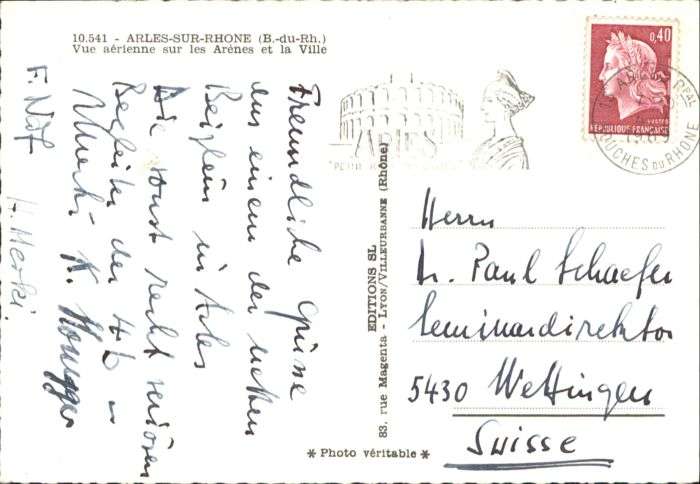 10.541 - ARLES-SUR-RHONE (B.-du-Rh.)
Vue aérienne sur les Arènes et la Ville
Freundliche Grüsse
aus einem der netten
Beizlein in Arles
Die sonst recht seriösen
Begleiter der 4b
K. Honegger
F. Näf
H. Merki
ARLES
EDITIONS SL
83, rue Magenta - LYON/VILLEURBANNE (Rhône)
* Photo véritable *
0,40
POSTES
REPUBLIQUE FRANÇAISE
BOUCHES DU RHONE
Herrn
Dr. Paul Schaefer
Seminardirektor
5430 Wettingen
Suisse